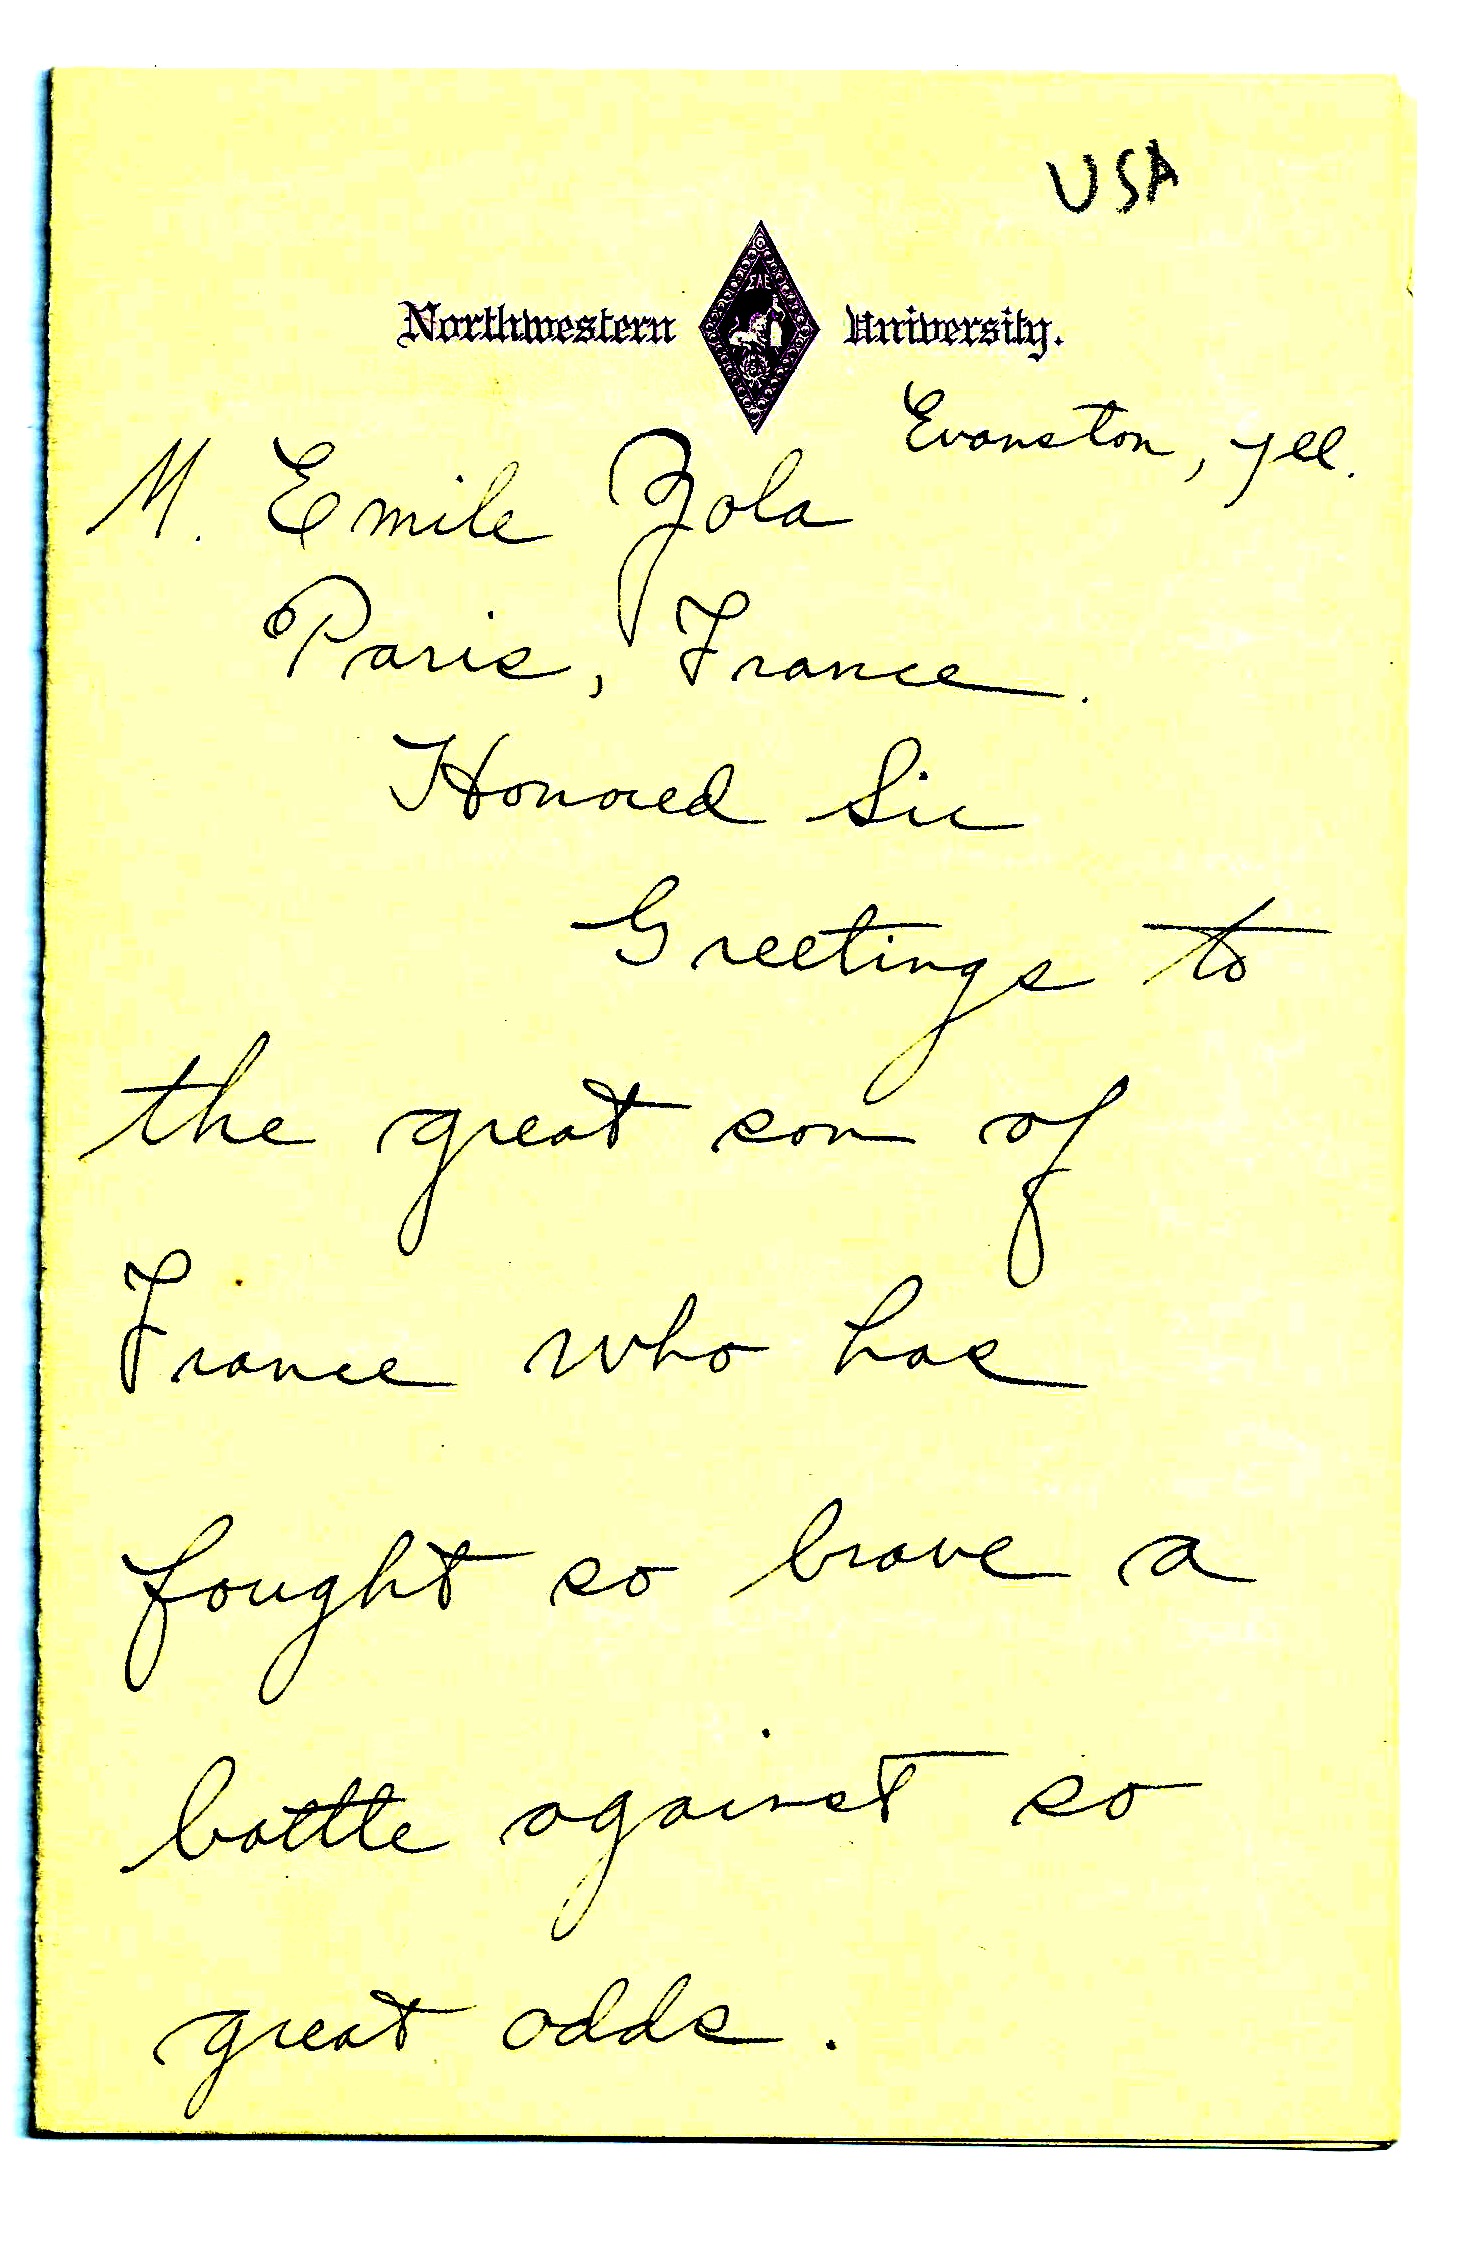 USA
Northwestern ΣΑΕ University.
Evanston, Ill.
M. Emile Zola
Paris, France.
Honored Sir
Greetings to
the great son of
France who has
fought so brave a
battle against so
great odds.